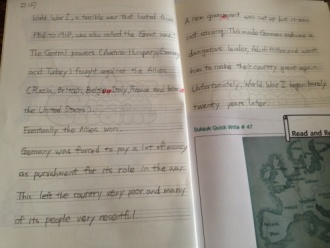 World War I, a terrible war that lasted from
1914 to 1918, was also called the Great War.
The Central powers (Austria-Hungary, Germany,
and Turkey) fought against the Allies
(Russia, Britain, Belgium, Italy, France and
the United States).
Eventually the Allies won.
Germany was forced to pay a lot of money
as punishment for its role in the war.
This left the country very poor and many
of its people very resentful.
A new government was set up but it was
not strong. This made Germany
dangerous leader, Adolf Hitler and want
him to make their country great again.
Unfortunately, World War II began barely
twenty years later.
Quick Write # 47
Read and Re